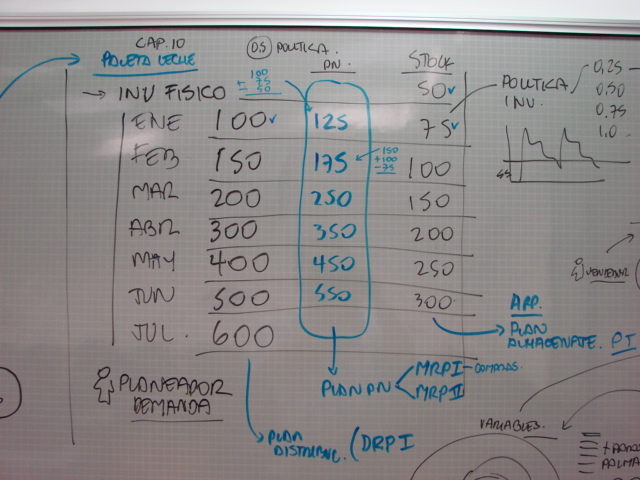 CAP. 10
PALETA LECHE
0.5 POLITICA.
PN.
STOCK
→ INV FISICO
100
+ 75
- 50
50
ENE 100 125 75
FEB 150 175 100
150
+100
-75
MAR 200 250 150
ABR 300 350 200
MAY 400 450 250
JUN 500 550 300
JUL. 600
POLITICA INV.
0,25
0.50
0.75
1.0
SS
VENDEDOR
APP.
PLAN
ALMACENATE. PI
PLANEADOR
DEMANDA
PLAN PN
MRP I
MRP II
PLAN
DISTRIBUC. (DRP I
VARIABLES.